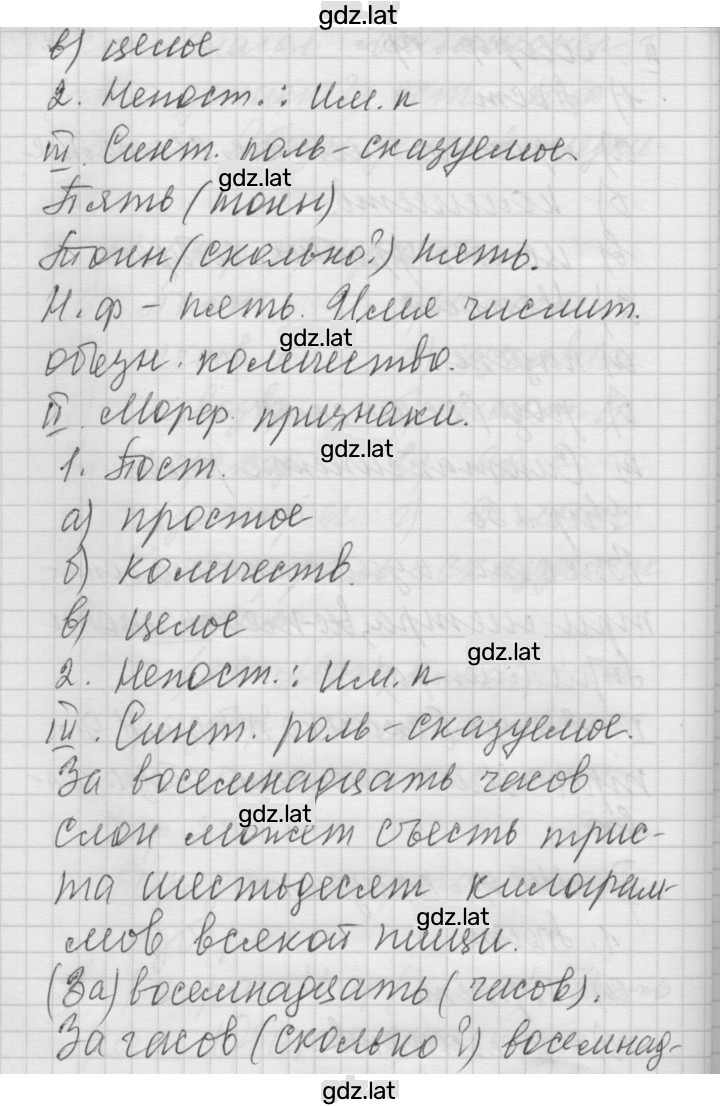 gdz.lat
в) целое
2. Непост.: Им. п
III. Синт. роль - сказуемое.
gdz.lat
Пять (тонн)
Тонн (сколько?) пять.
Н. ф - пять. Имя числит.
gdz.lat
обозн. количество.
II. Морф. признаки.
gdz.lat
1. Пост.
а) простое
б) количеств.
в) целое
gdz.lat
2. Непост.: Им. п
III. Синт. роль - сказуемое.
За восемнадцать часов
gdz.lat
слон может съесть трис-
та шестьдесят килограм-
gdz.lat
мов всякой пищи.
(За) восемнадцать (часов).
За часов (сколько?) восемнад-
gdz.lat